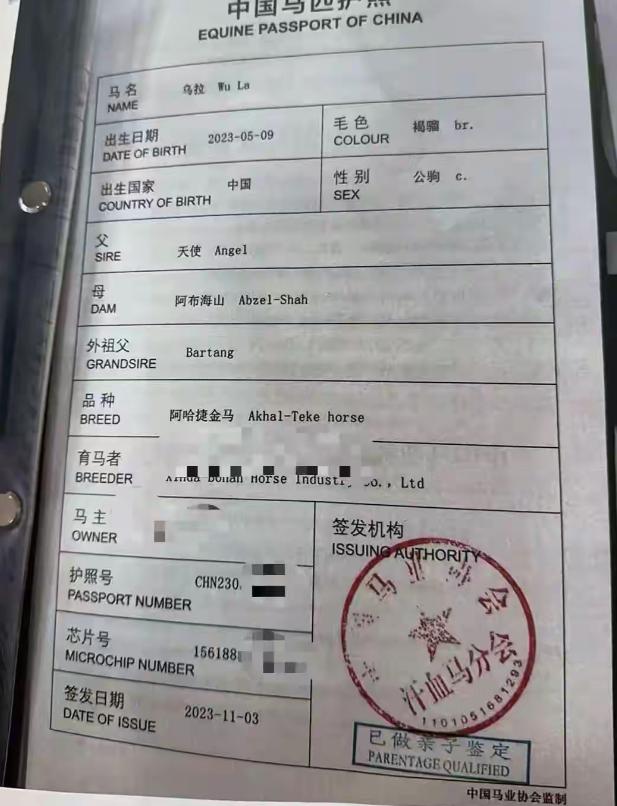 中国马匹护照
EQUINE PASSPORT OF CHINA
马名 乌拉 Wu La
NAME
出生日期 2023-05-09 毛色 褐骝 br.
DATE OF BIRTH COLOUR
出生国家 中国 性别 公驹 c.
COUNTRY OF BIRTH SEX
父
SIRE 天使 Angel
母
DAM 阿布海山 Abzel-Shah
外祖父
GRANDSIRE Bartang
品种
BREED 阿哈捷金马 Akhal-Teke horse
育马者
BREEDER Horse Industry Co., Ltd
马主 签发机构
OWNER ISSUING AUTHORITY
护照号 CHN230
PASSPORT NUMBER
芯片号 156188
MICROCHIP NUMBER
签发日期 2023-11-03
DATE OF ISSUE
马业协会
汗血马分会
1101051681293
已做亲子鉴定
PARENTAGE QUALIFIED
中国马业协会监制